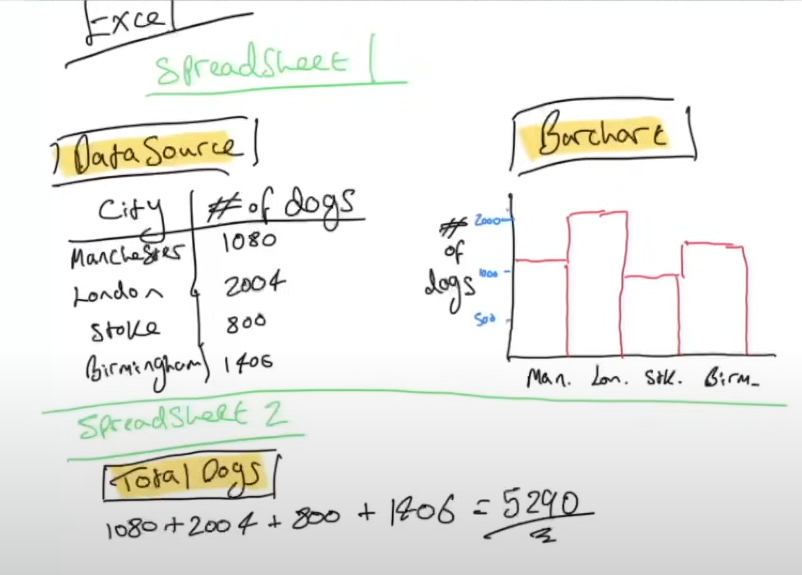 Excel
Spreadsheet 1
Data Source
City # of dogs
Manchester 1080
London 2004
Stoke 800
Birmingham 1406
Barchart
# of dogs
2000
1000
500
Man. Lon. Stk. Birm.
Spreadsheet 2
Total Dogs
1080 + 2004 + 800 + 1406 = 5290